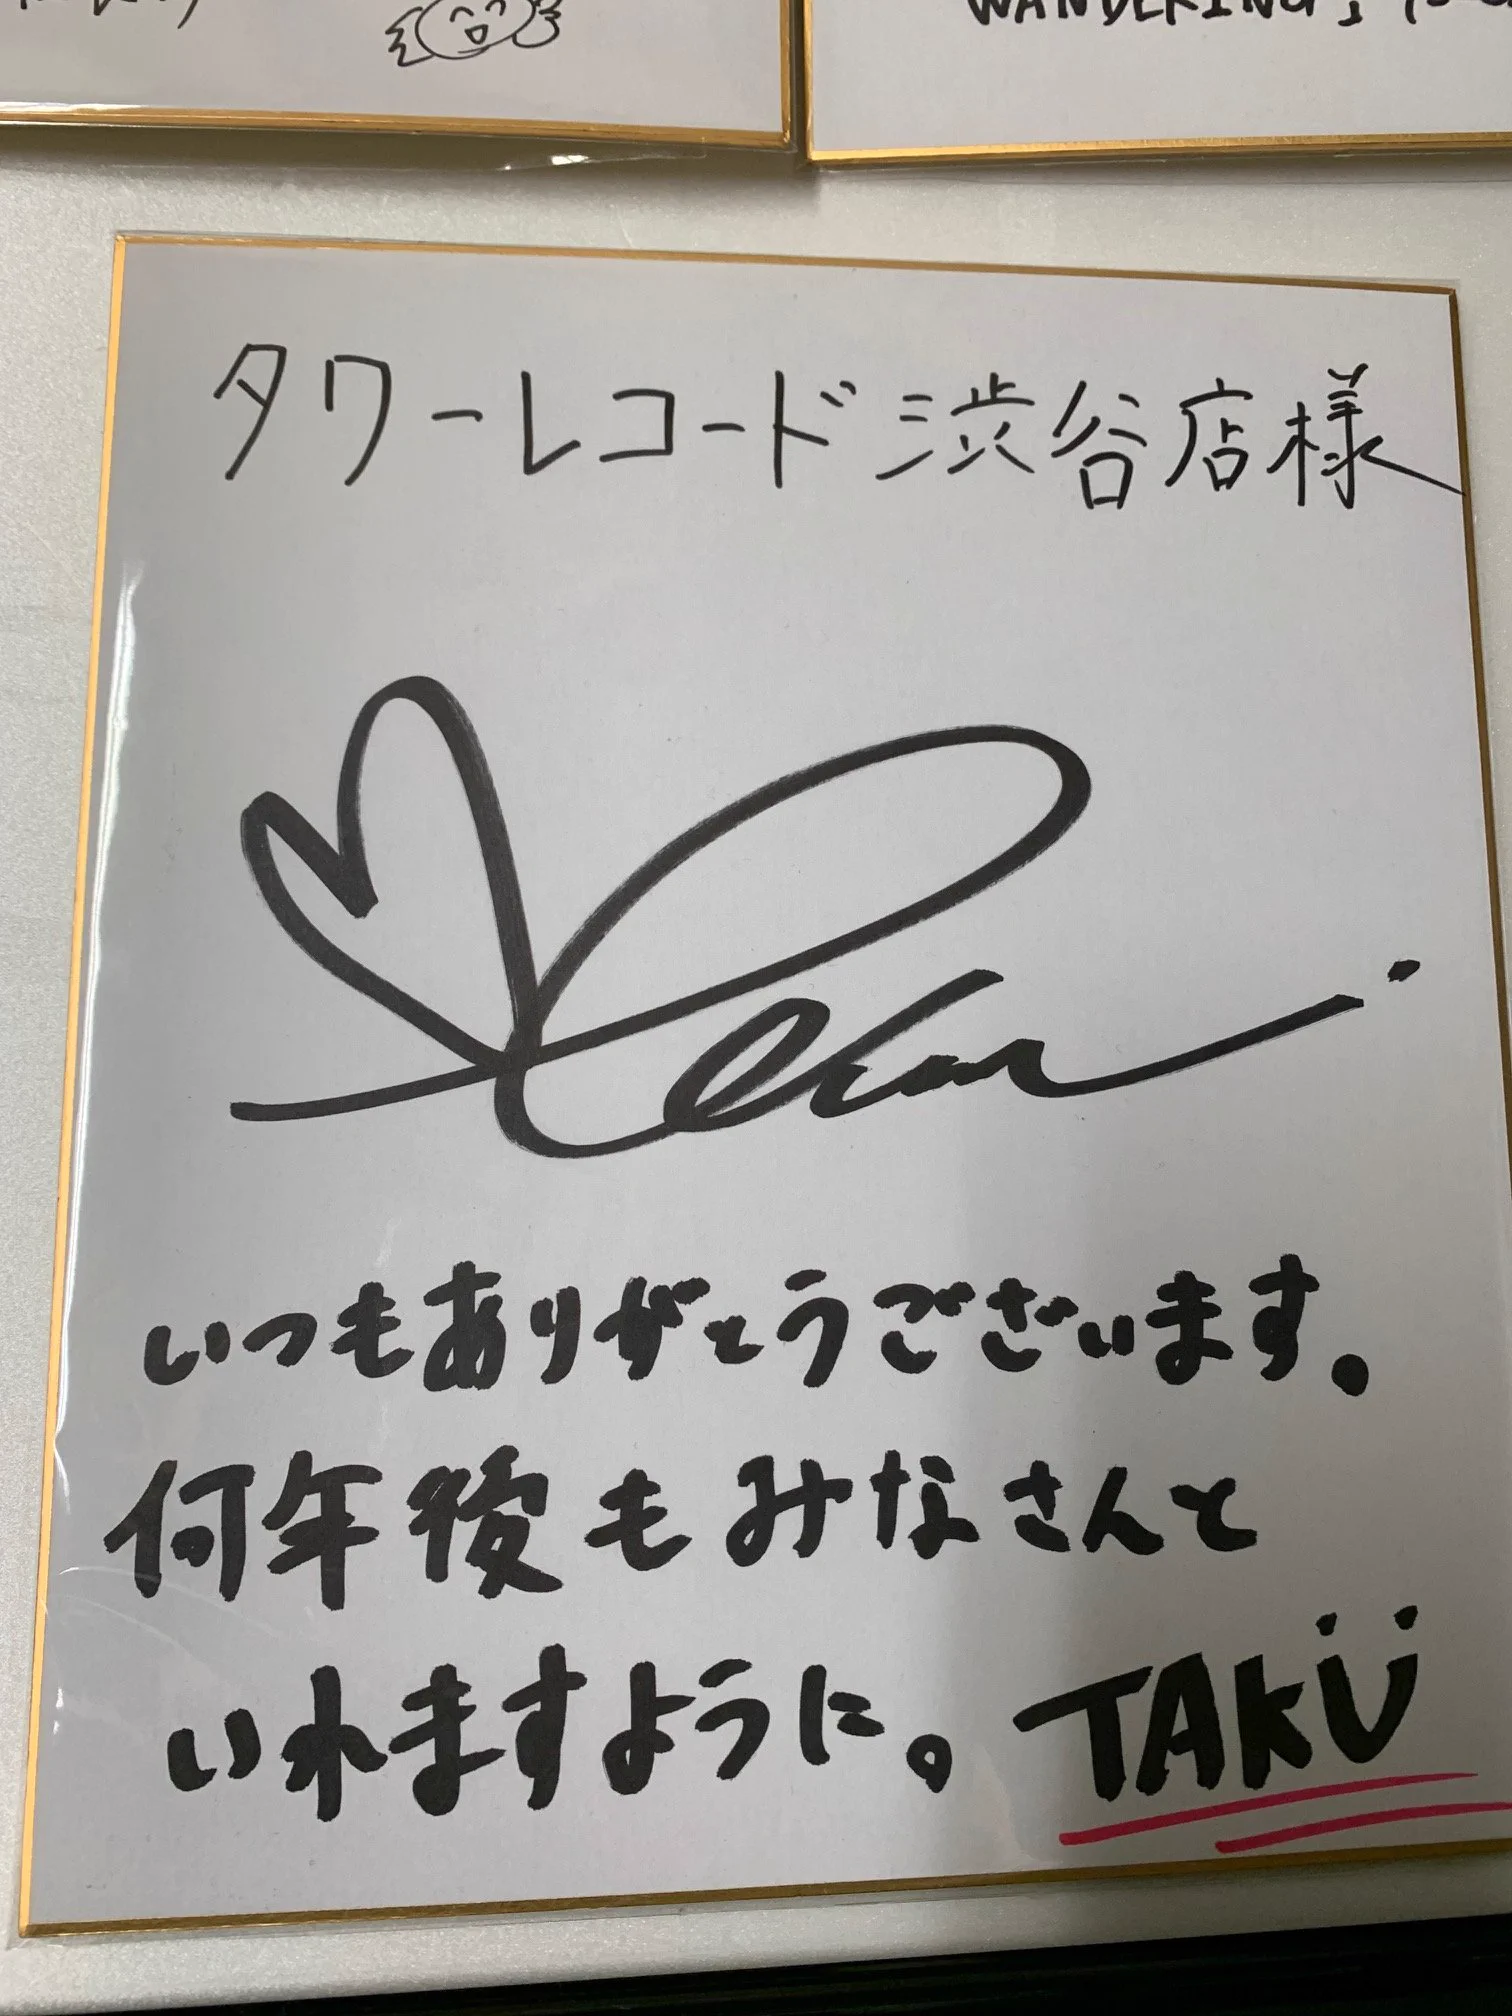 WANDERING」
タワーレコード渋谷店様
いつもありがとうございます。
何年後もみなさんと
いれますように。TAKU